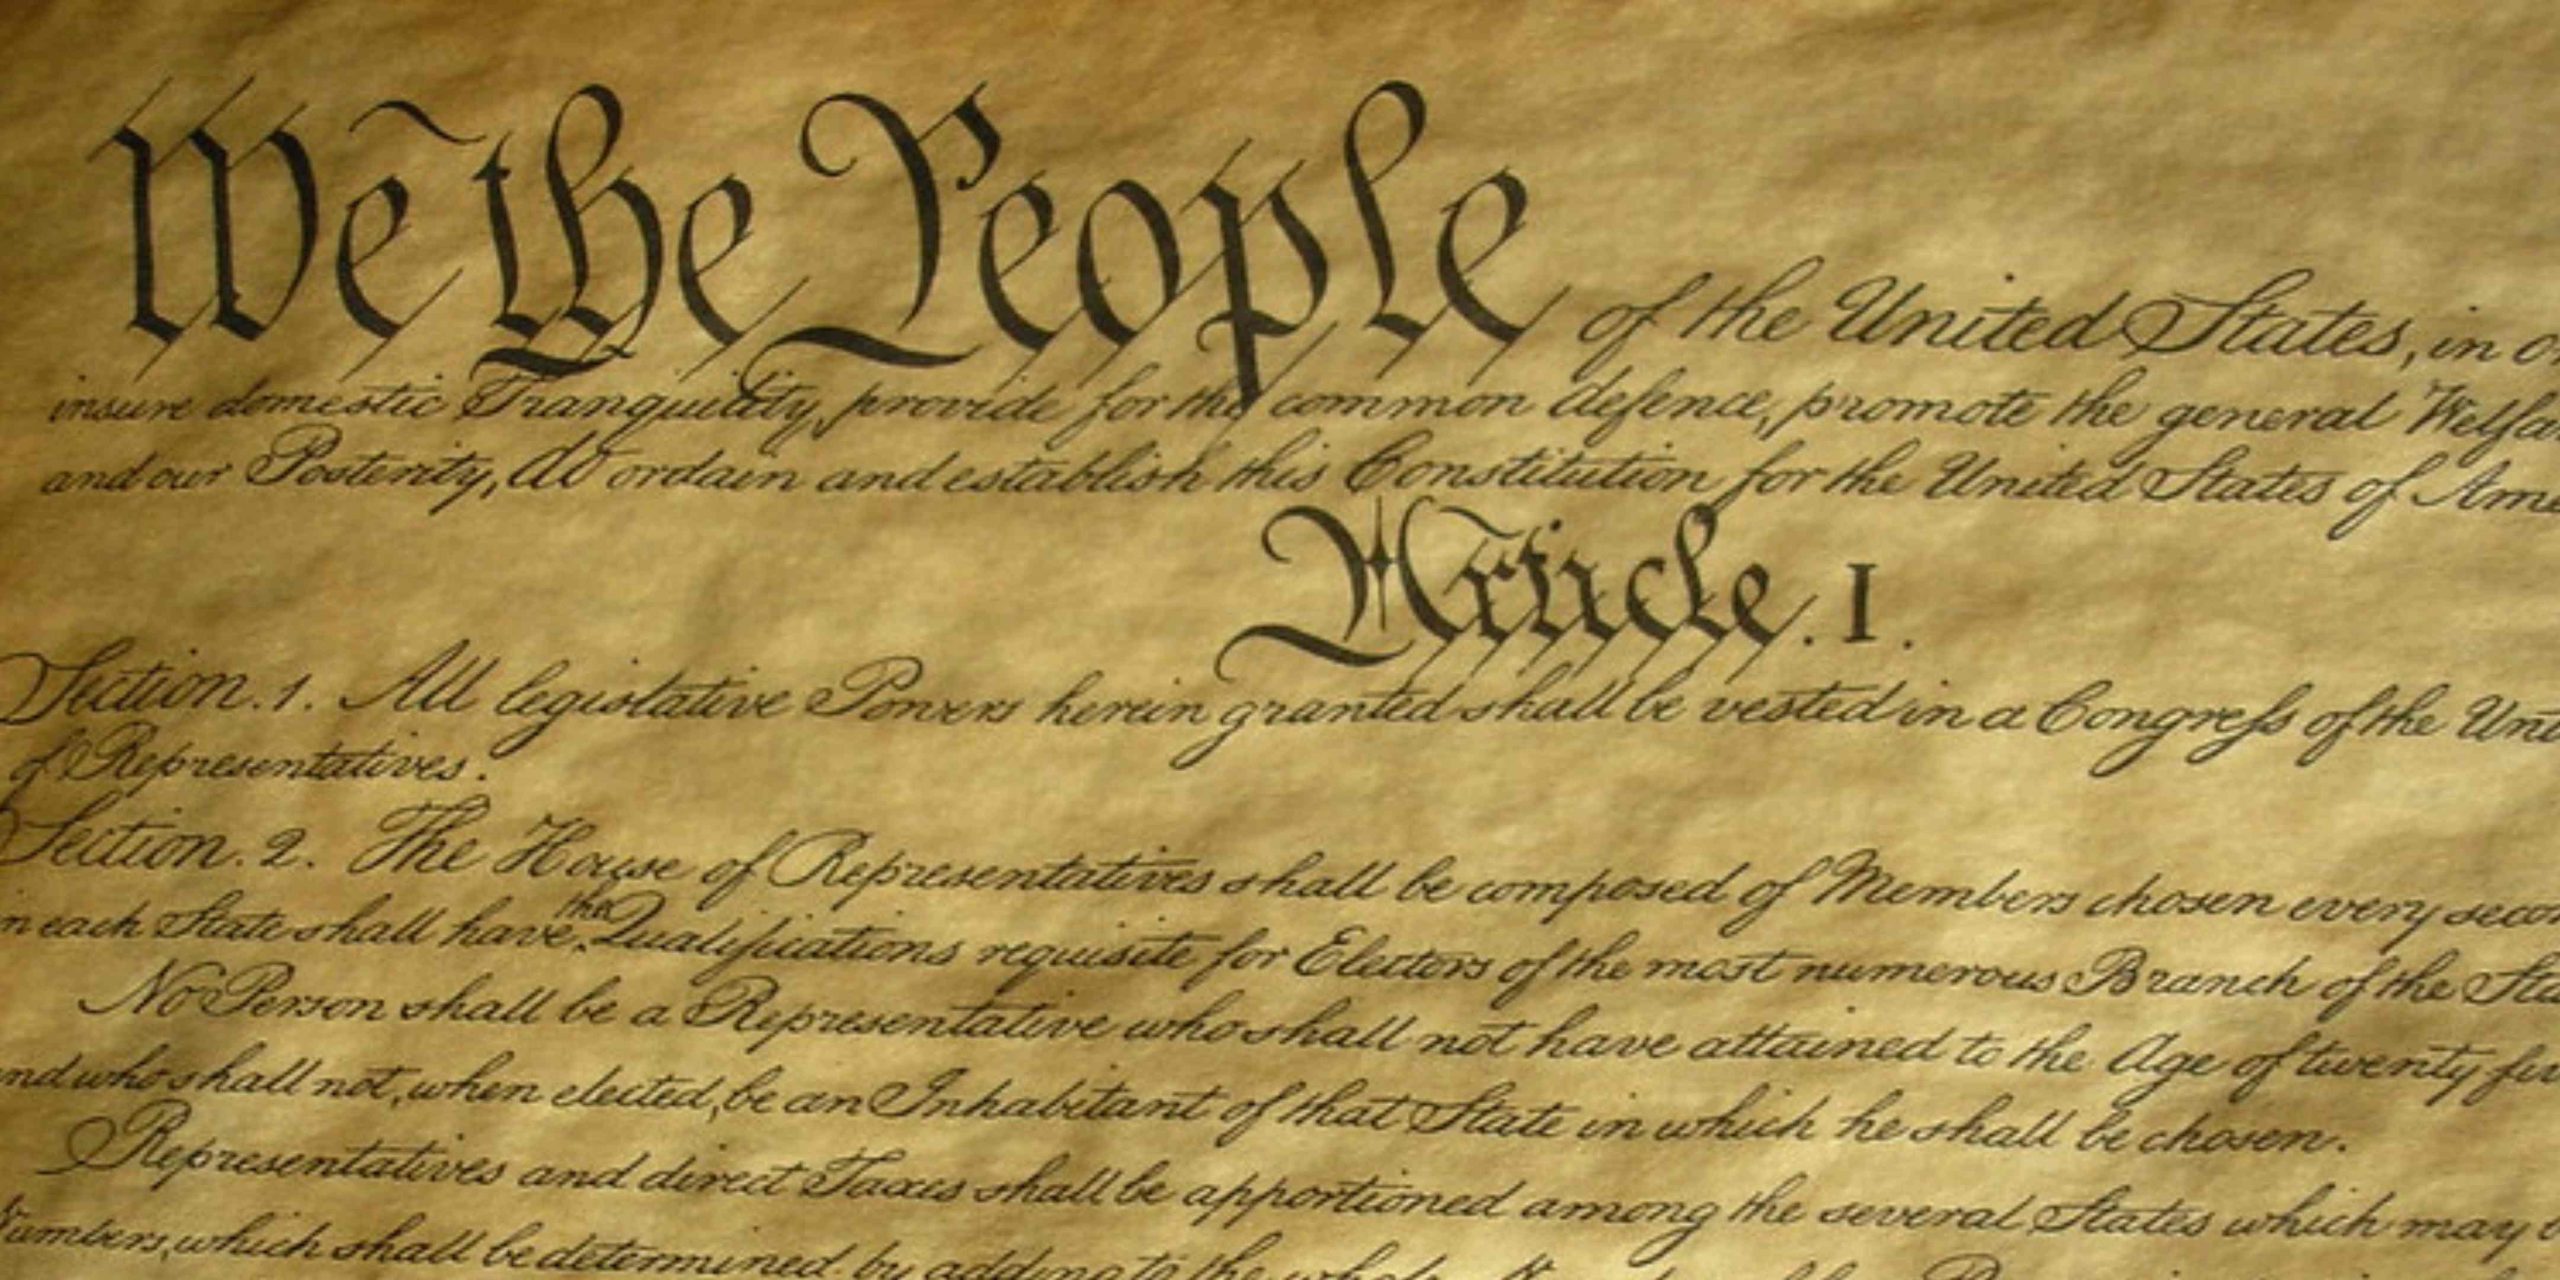 We the People of the United States, in o
insure domestic Tranquility, provide for the common defence, promote the general Welfa
and our Posterity, do ordain and establish this Constitution for the United States of Ame
Article. I.
Section. 1. All legislative Powers herein granted shall be vested in a Congress of the Unit
of Representatives.
Section. 2. The House of Representatives shall be composed of Members chosen every secon
the
in each State shall have Qualifications requisite for Electors of the most numerous Branch of the Sta
No Person shall be a Representative who shall not have attained to the Age of twenty fiv
nd who shall not, when elected, be an Inhabitant of that State in which he shall be chosen.
Representatives and direct Taxes shall be apportioned among the several States which may b
Numbers, which shall be determined by adding to the whole